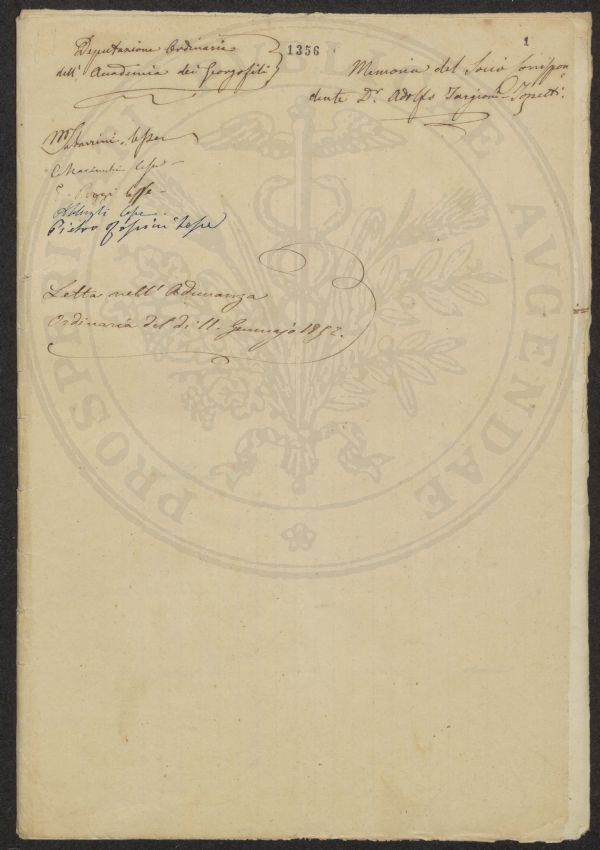 Deputazione Ordinaria
dell' Accademia dei Georgofili
1356
1
Memoria del Socio Corrispon
dente Dr. Adolfo Targioni Tozzetti.
Tabarrini lesse
lesse
Poggi lesse
lesse
Pietro lesse
Letta nell' Adunanza
Ordinaria del dì 11. Gennajo 1852.
PROSPERITATI AUGENDAE